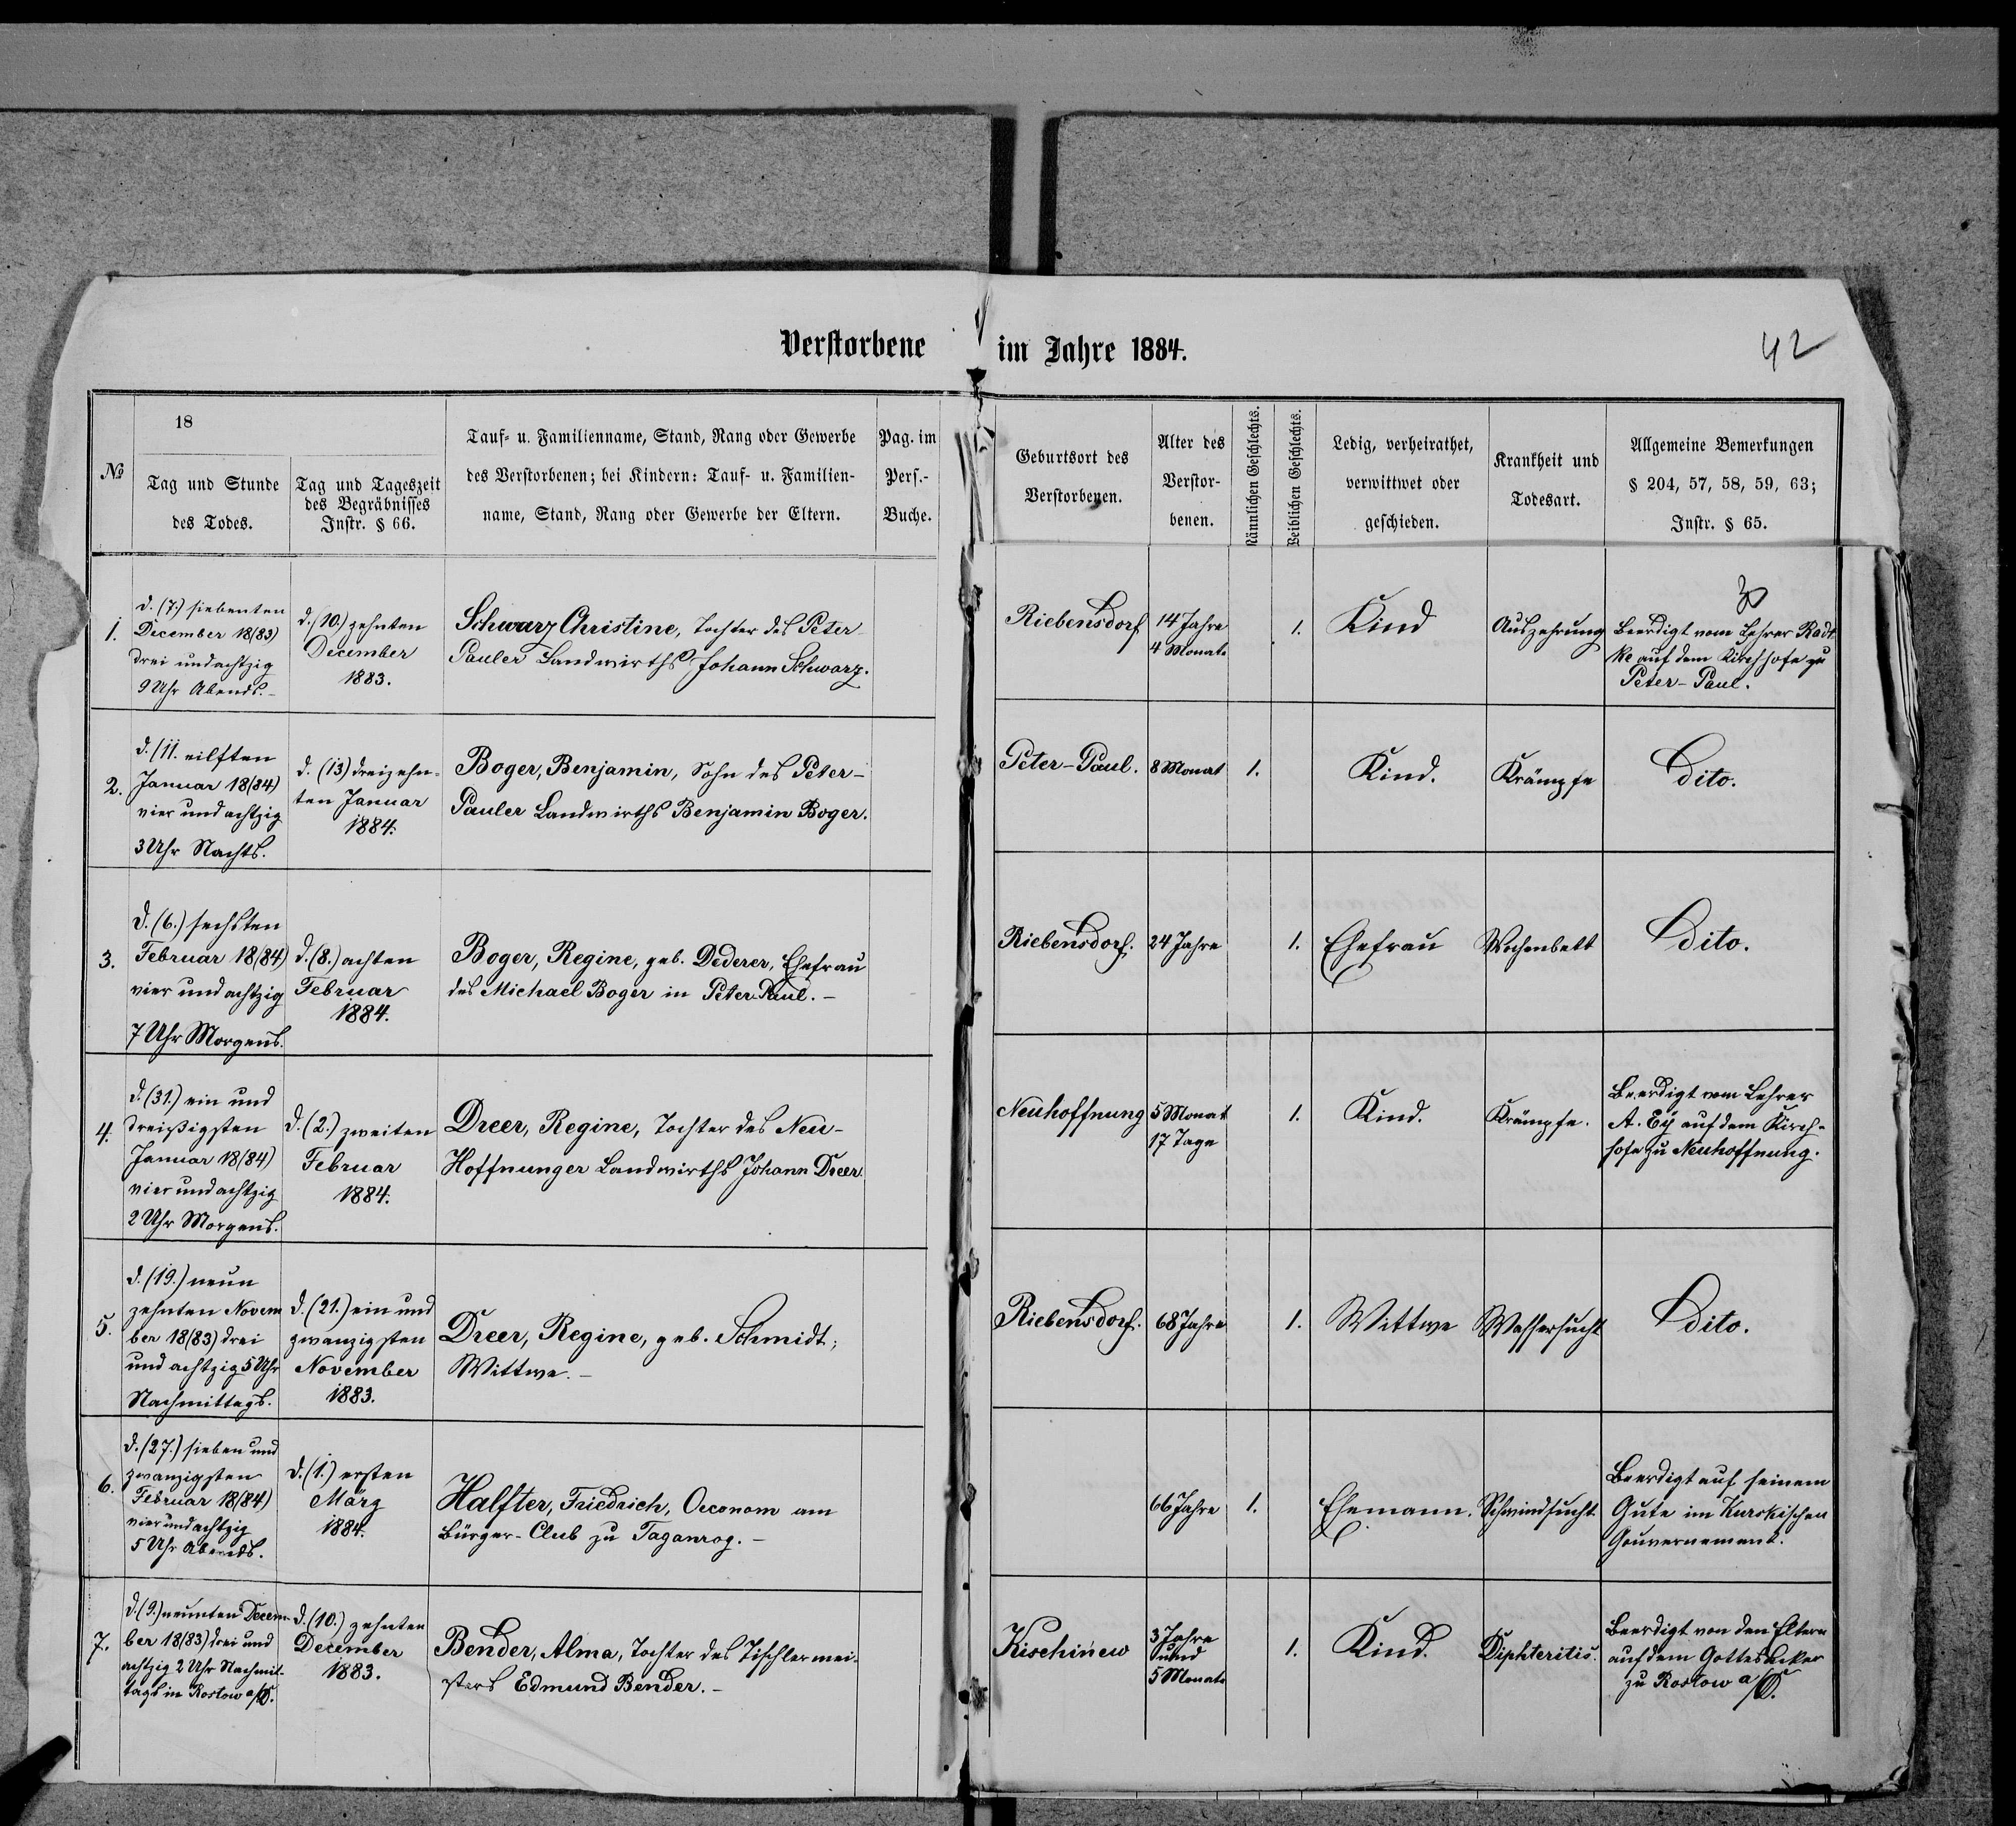 Verstorbene im Jahre 1884.
42
№
18
Tag und Stunde
des Todes.
Tag und Tageszeit
des Begräbnisses
Instr. § 66.
Tauf- u. Familienname, Stand, Rang oder Gewerbe
des Verstorbenen; bei Kindern: Tauf- u. Familien-
name, Stand, Rang oder Gewerbe der Eltern.
Pag. im
Pers.-
Buche.
Geburtsort des
Verstorbenen.
Alter des
Verstor-
benen.
Männlichen Geschlechts.
Weiblichen Geschlechts.
Ledig, verheirathet,
verwittwet oder
geschieden.
Krankheit und
Todesart.
Allgemeine Bemerkungen
§ 204, 57, 58, 59, 63;
Instr. § 65.
1.
d. (7.) siebenten
December 18(83)
drei und achtzig
9 Uhr Abends.-
d. (10.) zehnten
December
1883.
Schwarz Christine, Tochter des Peter
Pauler Landwirths Johann Schwarz.
Riebensdorf
14 Jahre
4 Monate
1.
Kind
Auszehrung
Beerdigt vom Lehrer Radt
ke auf dem Kirchhofe zu
Peter-Paul.
2.
d. (11. eilften
Januar 18(84)
vier und achtzig
3 Uhr Nachts.
d. (13) dreizehn-
ten Januar
1884.
Boger, Benjamin, Sohn des Peter-
Pauler Landwirths Benjamin Boger.
Peter-Paul.
8 Monat
1.
Kind.
Krämpfe
Dito.
3.
d. (6.) sechsten
Februar 18(84)
vier und achtzig
7 Uhr Morgens.
d. (8.) achten
Februar
1884.
Boger, Regine, geb. Dederer, Ehefrau
des Michael Boger in Peter-Paul.-
Riebensdorf.
24 Jahre
1.
Ehefrau
Wochenbett
Dito.
4.
d. (31.) ein und
dreißigsten
Januar 18(84)
vier und achtzig
2 Uhr Morgens.
d. (2.) zweiten
Februar
1884.
Dreer, Regine, Tochter des Neu-
Hoffnunger Landwirths Johann Dreer.
Neuhoffnung
5 Monat
17 Tage
1.
Kind.
Krämpfe.
Beerdigt vom Lehrer
A. Ey auf dem Kirch-
hofe zu Neuhoffnung.
5.
d. (19.) neun
zehnten Novem
ber 18(83) drei
und achtzig 5 Uhr
Nachmittags.
d. (21.) ein und
zwanzigsten
November
1883.
Dreer, Regine, geb. Schmidt,
Wittwe.-
Riebensdorf.
68 Jahre
1.
Wittwe
Wassersucht
Dito.
6.
d. (27.) sieben und
zwanzigsten
Februar 18(84)
vier und achtzig
5 Uhr Abends.
d. (1.) ersten
März
1884.
Halfter, Friedrich, Oeconom am
Bürger-Club zu Taganrog.-
66 Jahre
1.
Ehemann.
Schwindsucht
Beerdigt auf seinem
Gute im Kurskischen
Gouvernement.
7.
d. (9.) neunten Decem-
ber 18(83) drei und
achtzig 2 Uhr Nachmit-
tags in Rostow a/D.
d. (10.) zehnten
December
1883.
Bender, Alma, Tochter des Tischlermei-
sters Edmund Bender.-
Kischinew
3 Jahre
und
5 Monate
1.
Kind.
Diphteritis.
Beerdigt von den Eltern
auf dem Gottesacker
zu Rostow a/D.